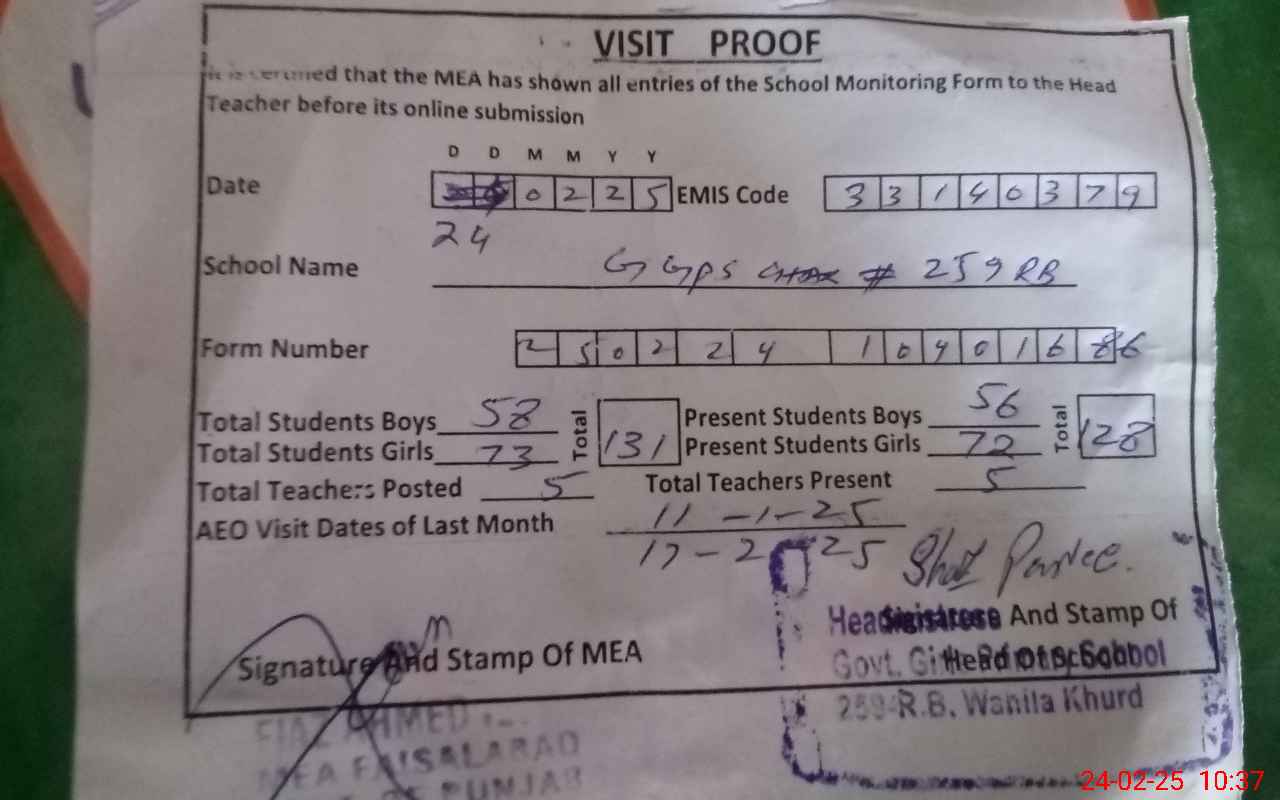 VISIT PROOF
It is certified that the MEA has shown all entries of the School Monitoring Form to the Head
Teacher before its online submission
D D M M Y Y
Date 0 2 2 5 EMIS Code 3 3 1 4 0 3 7 9
24
School Name GGPS CHAK # 259 RB
Form Number 2 5 0 2 2 4 1 0 4 0 1 6 86
Total Students Boys 58 Total 131 Present Students Boys 56 Total 128
Total Students Girls 73 Present Students Girls 72
Total Teachers Posted 5 Total Teachers Present 5
AEO Visit Dates of Last Month 11-1-25
17-2 25
Signature And Stamp Of MEA
Headmistress And Stamp Of
Govt. Head Of School
259-R.B. Wanila Khurd
FIAZ AHMED
MEA FAISALABAD
PUNJAB
24-02-25 10:37